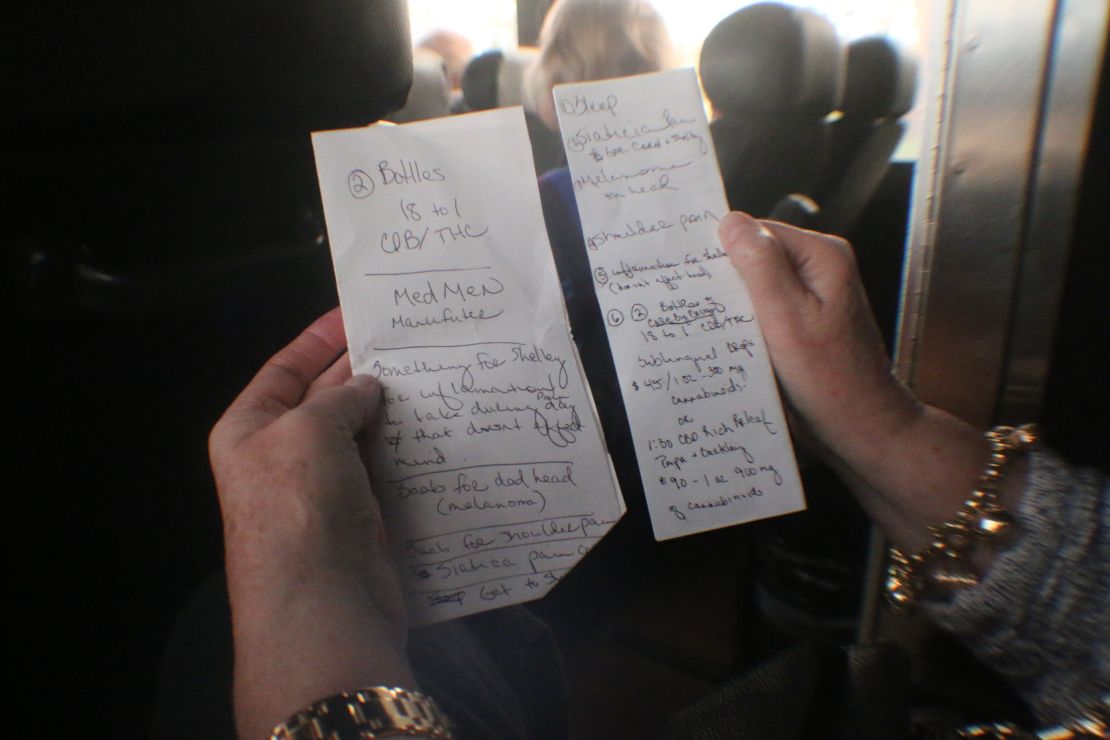 ② Bottles
18 to 1
CDB/THC
MedMen
Something for Shelley
for inflamation/
Pain
to take during day
that doesnt effect
mind.
Saab for dad head
(melanoma)
Saab for shoulder pain
Siatica pain
Get to
① Sleep
② Siatica pain
Shelley
Melanoma
on head
④ Shoulder pain
⑤ inflamation for Shelle
(doesn't effect head)
⑥ ② Bottles of
Care By Design
18 to 1 CDB/THC
Sublingual Drops
$45/1 oz - 300 mg
cannabinoids.
or
1:30 CBD Rich Releaf
Papa + Barkley
$90 - 1 oz 900 mg
of cannabinoids